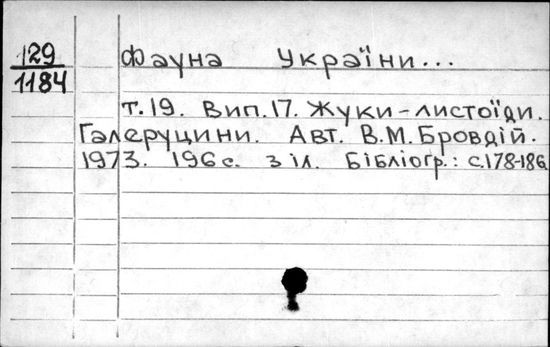 129 Фауна України...
1184
т.19. Вип.17. Жуки-листоїди.
Галеруцини. Авт. В.М.Бровдій.
1973. 196с. з іл. Бібліогр.: с.178-186